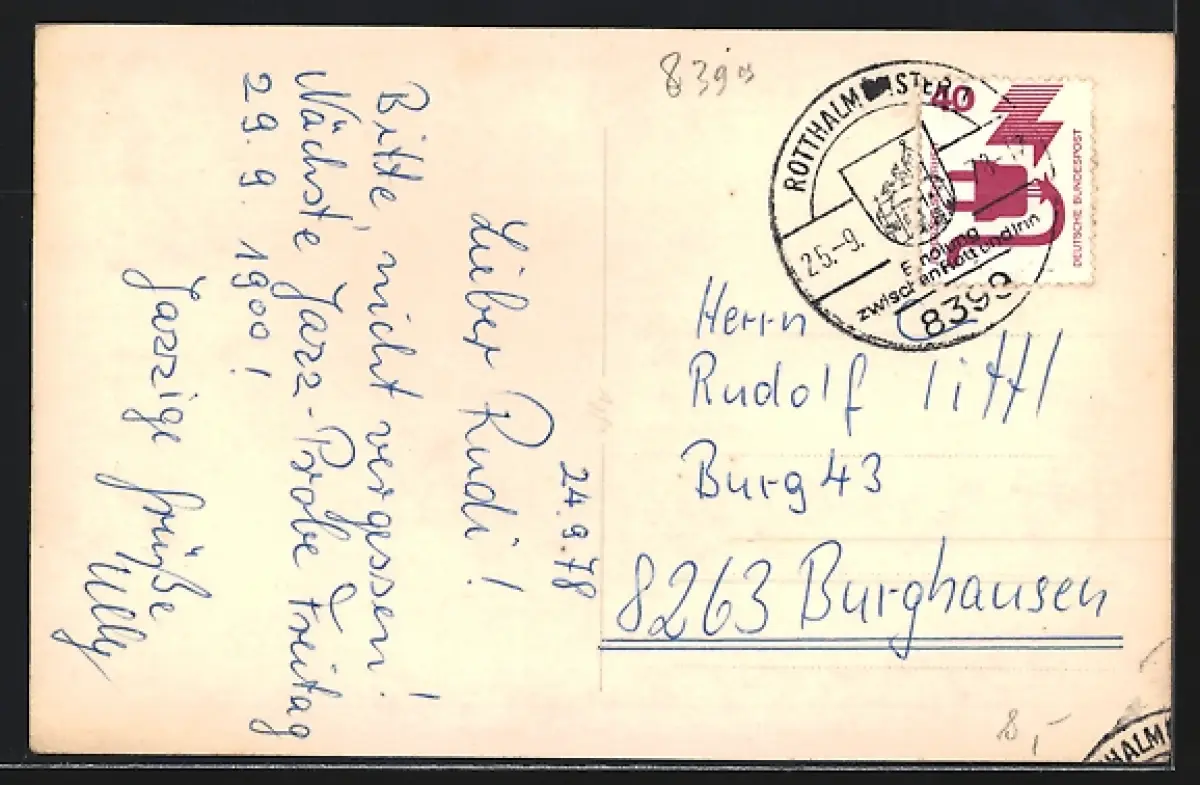 24.9.78
Lieber Rudi!
Bitte, nicht vergessen!
Nächste Jazz-Probe Freitag
29.9. 1900!
Jazzige Grüße
8399
ROTTHALMÜNSTER 1
25.-9. 78-17
Erholung
zwischen Rott und Inn
8399
40
DEUTSCHE BUNDESPOST
Herrn
Rudolf Tittl
Burg 43
8263 Burghausen
8,-
HALM